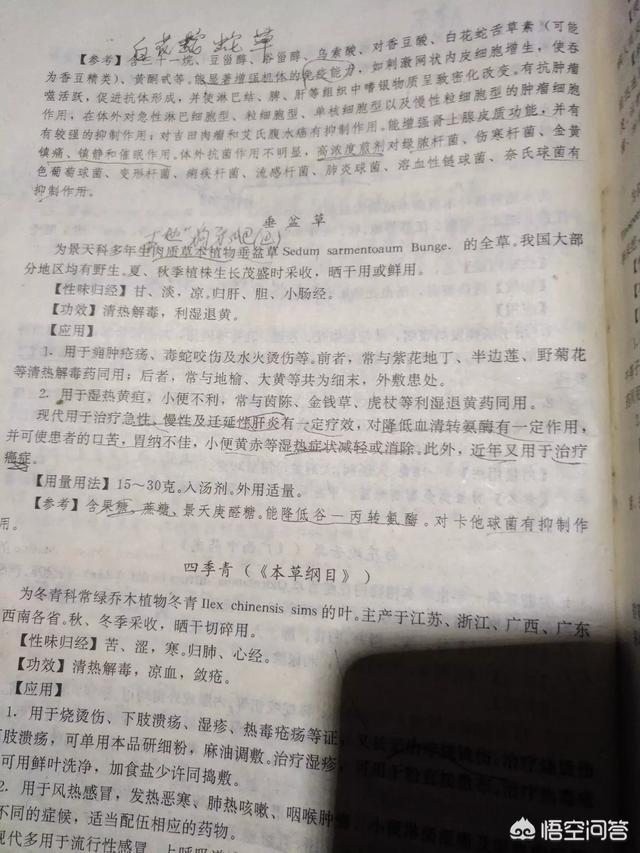 白花蛇舌草
【参考】 十一烷、豆甾醇、谷甾醇、乌索酸、对香豆酸、白花蛇舌草素（可能
为香豆精类）、黄酮甙等。能显著增强机体的免疫能力，如刺激网状内皮细胞增生，使吞
噬活跃，促进抗体形成，并使淋巴结、脾、肝等组织中嗜银物质呈致密化改变。有抗肿瘤
作用，在体外对急性淋巴细胞型、粒细胞型、单核细胞型以及慢性粒细胞型的肿瘤细胞
有较强的抑制作用；对吉田肉瘤和艾氏腹水癌有抑制作用。能增强肾上腺皮质功能，并有
镇痛、镇静和催眠作用。体外抗菌作用不明显，高浓度煎剂对绿脓杆菌、伤寒杆菌、金黄
色葡萄球菌、变形杆菌、痢疾杆菌、流感杆菌、肺炎球菌、溶血性链球菌、奈氏球菌有
抑制作用。
垂盆草
为景天科多年生肉质草本植物垂盆草 Sedum sarmentoaum Bunge. 的全草。我国大部
分地区均有野生。夏、秋季植株生长茂盛时采收，晒干用或鲜用。
【性味归经】甘、淡，凉。归肝、胆、小肠经。
【功效】清热解毒，利湿退黄。
【应用】
1. 用于痈肿疮疡、毒蛇咬伤及水火烫伤等。前者，常与紫花地丁、半边莲、野菊花
等清热解毒药同用；后者，常与地榆、大黄等共为细末，外敷患处。
2. 用于湿热黄疸，小便不利，常与茵陈、金钱草、虎杖等利湿退黄药同用。
现代用于治疗急性、慢性及迁延性肝炎有一定疗效，对降低血清转氨酶有一定作用，
并可使患者的口苦，胃纳不佳，小便黄赤等湿热症状减轻或消除。此外，近年又用于治疗
癌症。
【用量用法】15～30克。入汤剂。外用适量。
【参考】含果糖、蔗糖、景天庚醛糖。能降低谷—丙转氨酶。对卡他球菌有抑制作
用。
四季青（《本草纲目》）
为冬青科常绿乔木植物冬青 Ilex chinensis sims 的叶。主产于江苏、浙江、广西、广东
西南各省。秋、冬季采收，晒干切碎用。
【性味归经】苦、涩，寒。归肺、心经。
【功效】清热解毒，凉血，敛疮。
【应用】
1. 用于烧烫伤、下肢溃疡、湿疹、热毒疮疡等证，
肢溃疡，可单用本品研细粉，麻油调敷。治疗湿疹，
可用鲜叶洗净，加食盐少许同捣敷。
2. 用于风热感冒，发热恶寒、肺热咳嗽、咽喉肿
不同的症候，适当配伍相应的药物。
现代多用于流行性感冒、上呼吸道
悟空问答